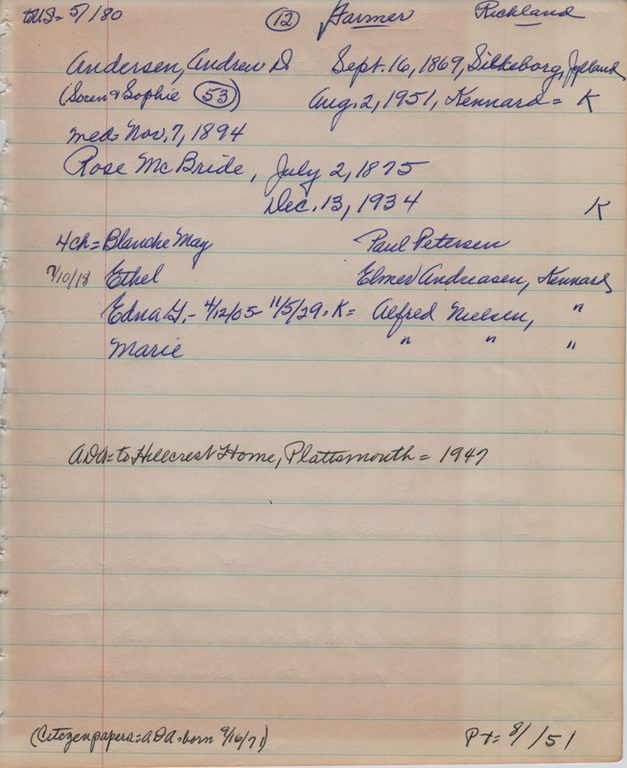 to US = 5/ 80 (12) Farmer Richland
Andersen, Andrew D Sept. 16, 1869, Silkeborg, Jylland
(Soren & Sophie (53) Aug. 2, 1951, Kennard = K
med = Nov. 7, 1894
Rose McBride, July 2, 1875
Dec. 13, 1934 K
4 ch = Blanche May Paul Petersen
7/10/18 Ethel Elmer Andreasen, Kennard
Edna G. - 4/12/05 - 11/5/29 = K = Alfred Nielsen, "
Marie " " "
ADA = to Hillcrest Home, Plattsmouth = 1947
(Citizen papers = ADA = born 9/16/71) Pt = 8/ /51